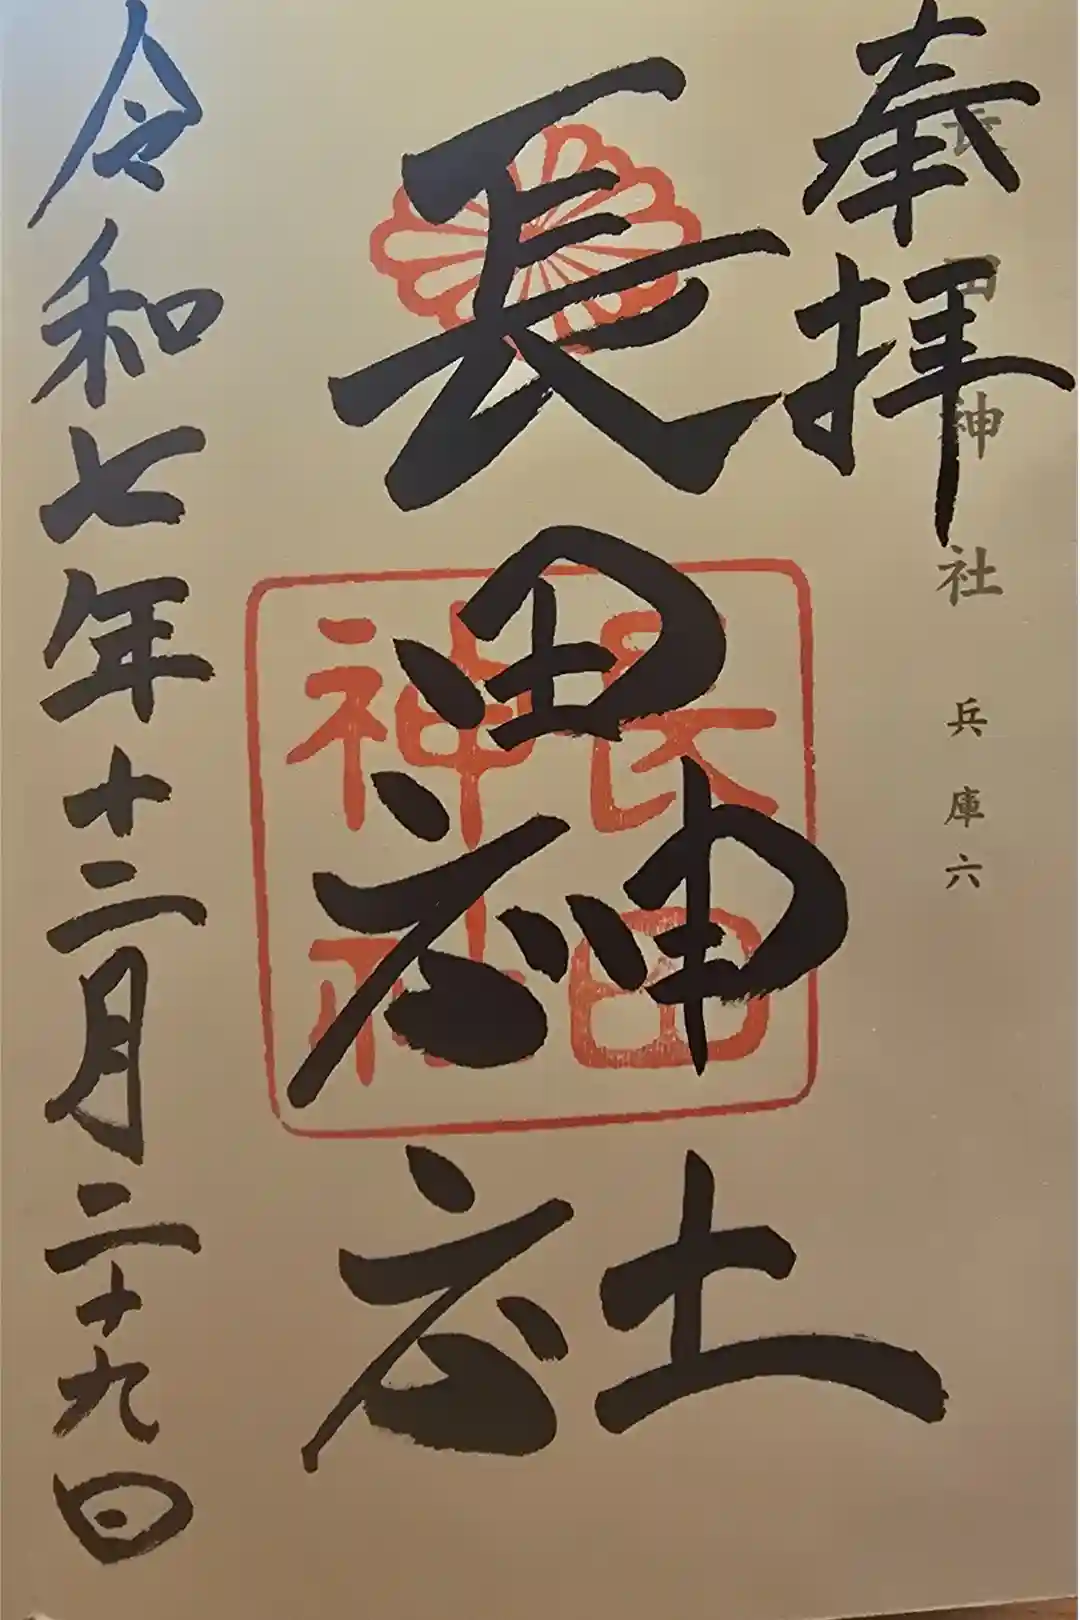 長田神社 兵庫六
奉拝
長田神社
長田神社
令和七年十二月二十九日